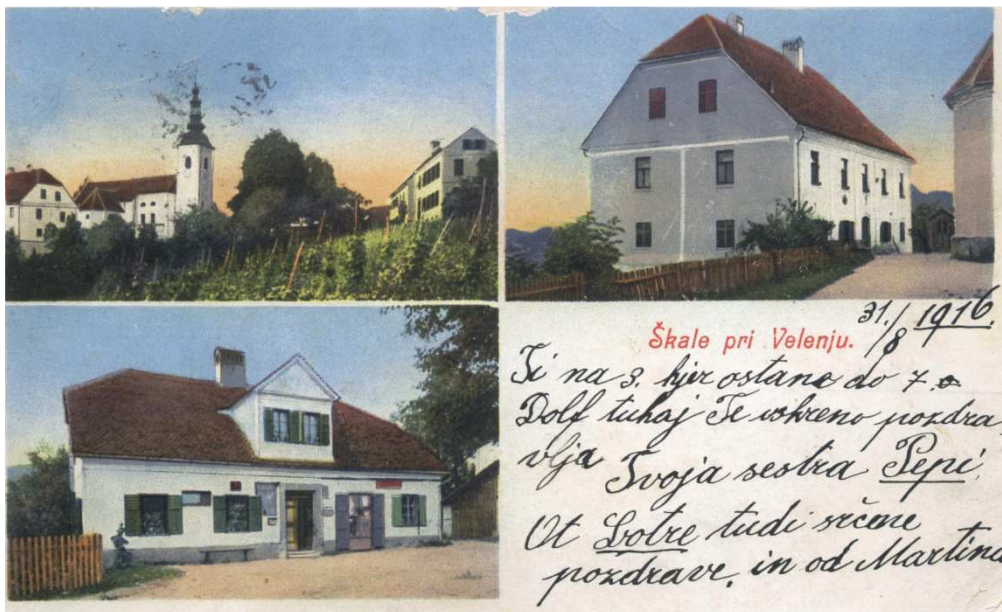 Škale pri Velenju.
31./8 1916.
Ti na 3. kjer ostane do 7.
Dolf tukaj Te iskreno pozdra
vlja
Tvoja sestra Pepi.
Ot Botre tudi srčne
pozdrave, in od Martina